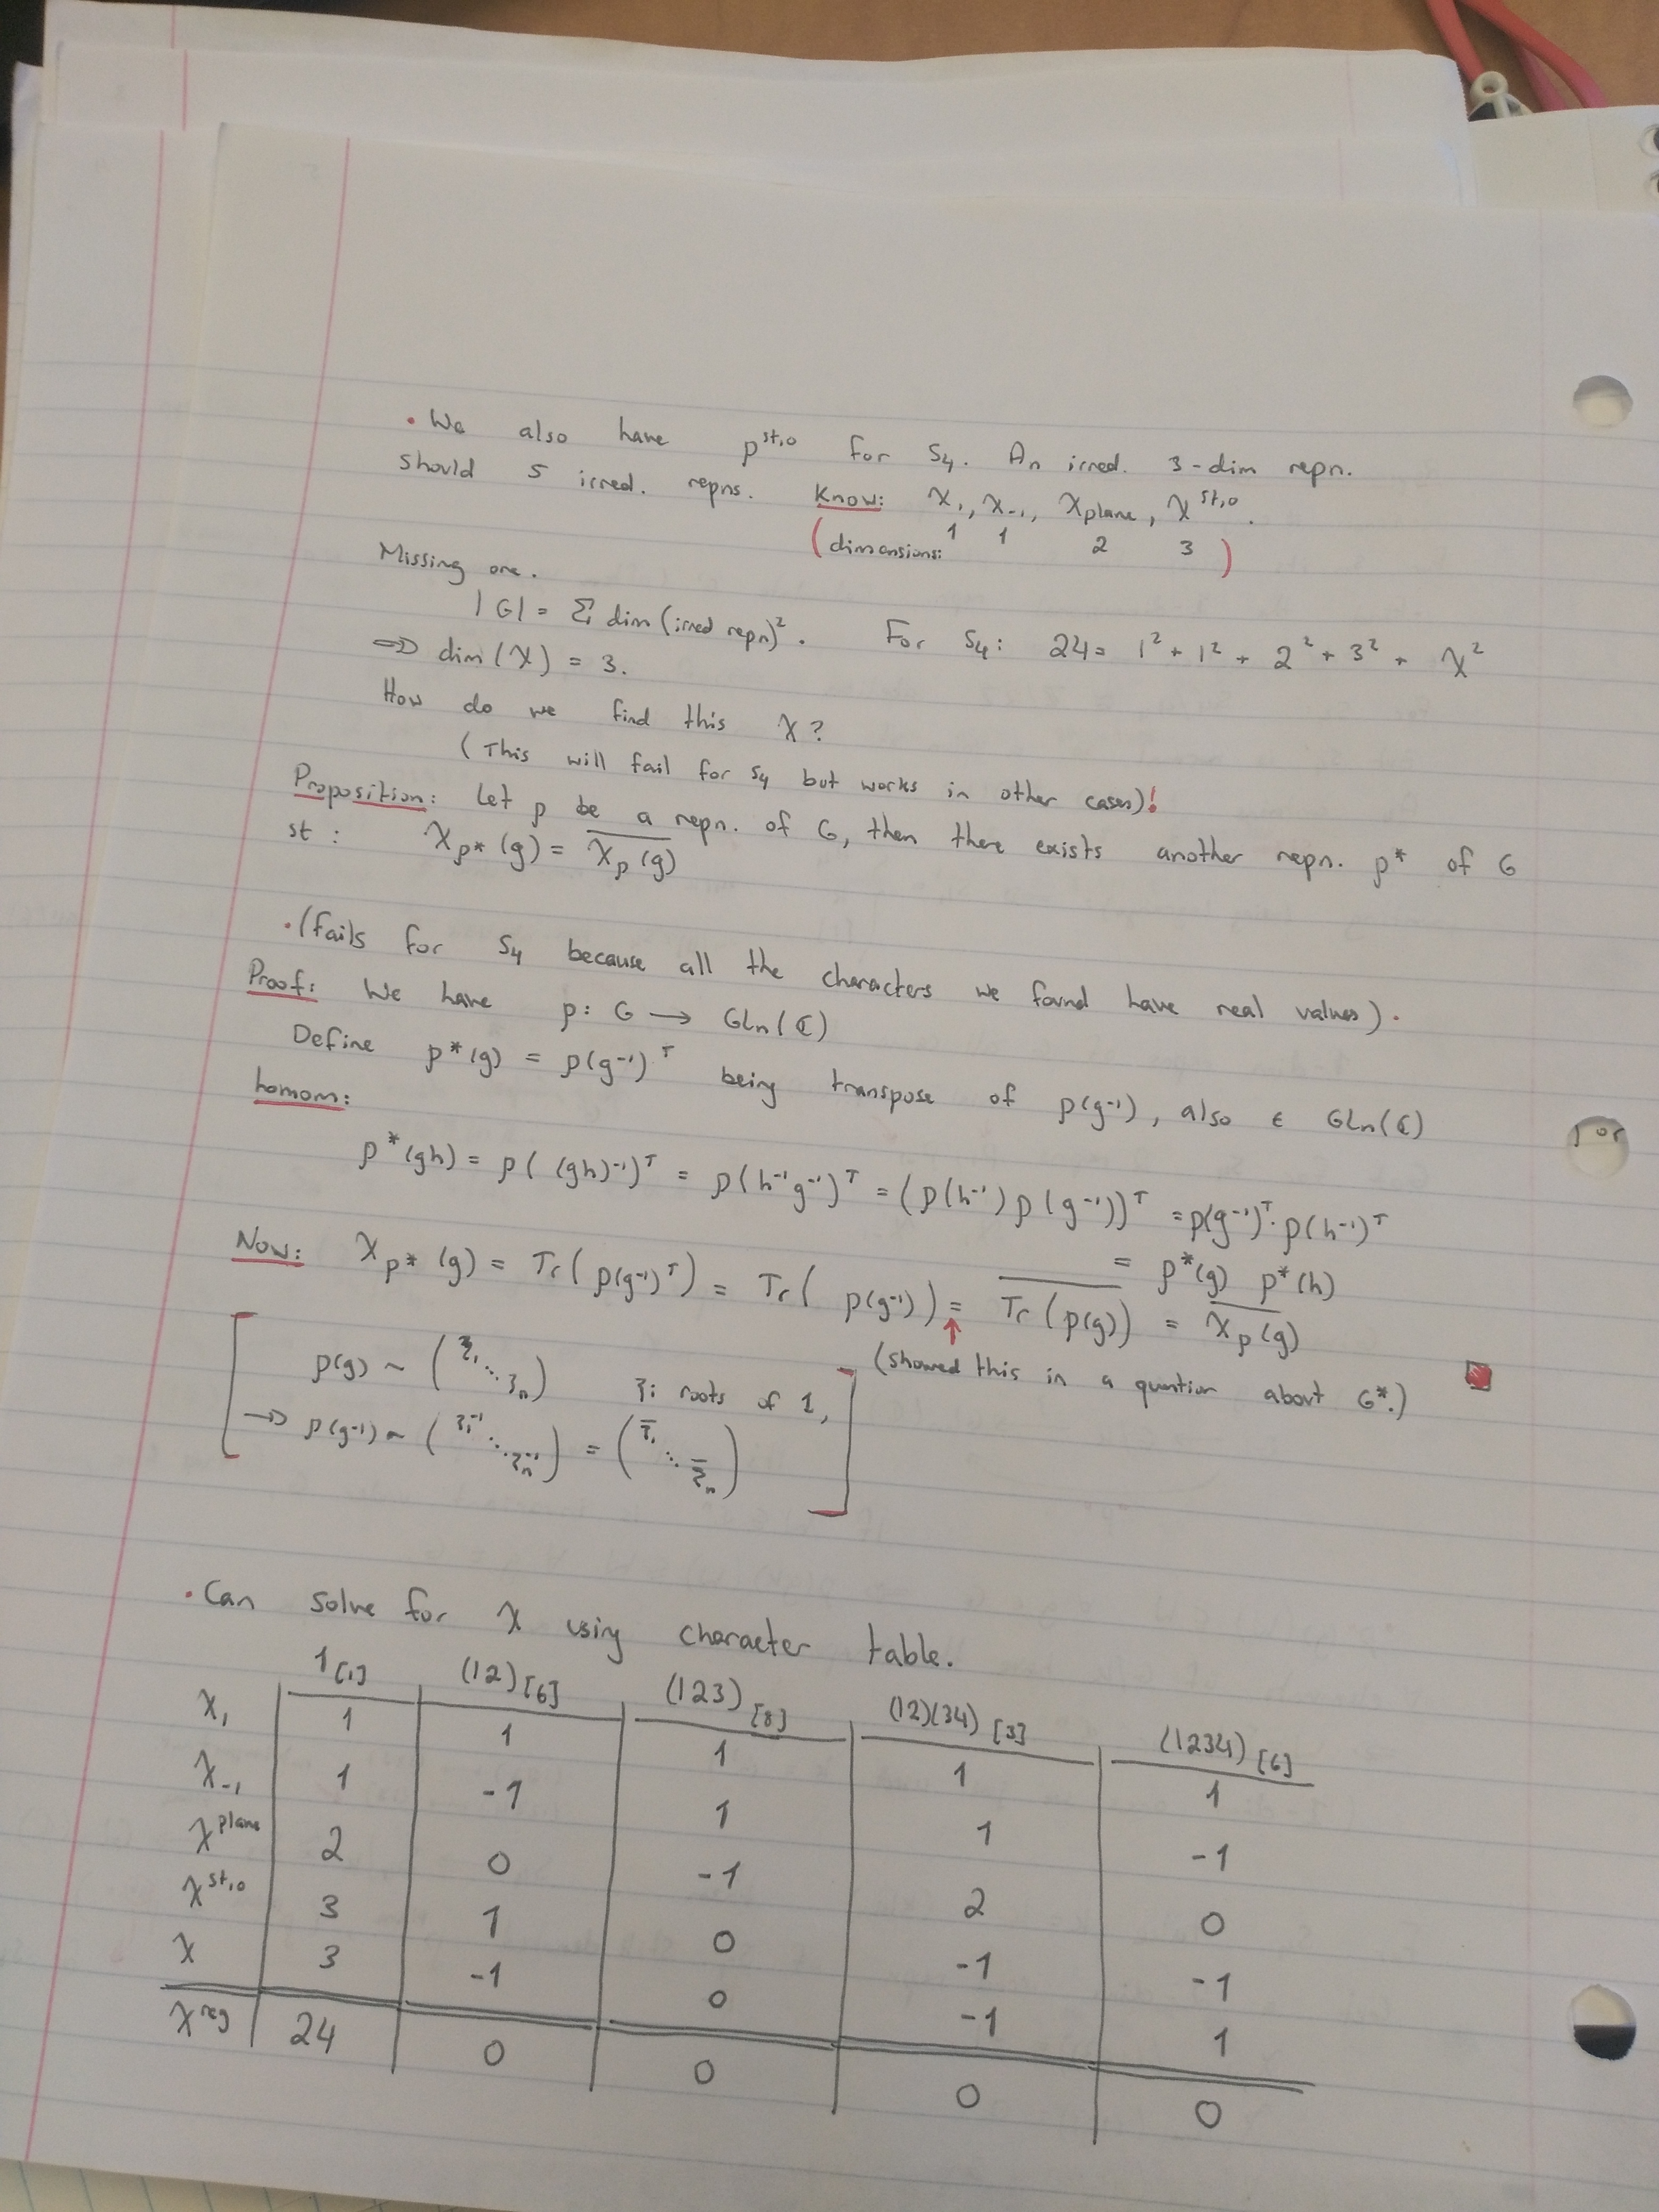 • We also have ρ^{st,0} for S₄. An irred. 3-dim repn.
should 5 irred. repns. Know: χ₁, χ₋₁, χ_{plane}, χ^{st,0}.
(dimensions: 1 1 2 3)
Missing one.
|G| = Σ dim(irred repn)². For S₄: 24 = 1² + 1² + 2² + 3² + χ²
⇒ dim(χ) = 3.
How do we find this χ?
(This will fail for S₄ but works in other cases)!
Proposition: Let ρ be a repn. of G, then there exists another repn. ρ* of G
st: χ_{ρ*}(g) = \overline{χ_ρ(g)}
• (fails for S₄ because all the characters we found have real values).
Proof: We have ρ: G → GLn(ℂ)
Define ρ*(g) = ρ(g⁻¹)ᵀ being transpose of ρ(g⁻¹), also ∈ GLn(ℂ)
homom:
ρ*(gh) = ρ((gh)⁻¹)ᵀ = ρ(h⁻¹g⁻¹)ᵀ = (ρ(h⁻¹) ρ(g⁻¹))ᵀ = ρ(g⁻¹)ᵀ · ρ(h⁻¹)ᵀ
= ρ*(g) ρ*(h)
Now: χ_{ρ*}(g) = Tr(ρ(g⁻¹)ᵀ) = Tr(ρ(g⁻¹)) = \overline{Tr(ρ(g))} = \overline{χ_ρ(g)}
↑ (showed this in a question about G*.)
[ρ(g) ~ (ξ₁ ⋱ ξₙ) ξᵢ roots of 1,
→ ρ(g⁻¹) ~ (ξ₁⁻¹ ⋱ ξₙ⁻¹) = (\overline{ξ₁} ⋱ \overline{ξₙ})]
• Can solve for χ using character table.
1 [1] (12) [6] (123) [8] (12)(34) [3] (1234) [6]
χ₁ 1 1 1 1 1
χ₋₁ 1 -1 1 1 -1
χ^{plane} 2 0 -1 2 0
χ^{st,0} 3 1 0 -1 -1
χ 3 -1 0 -1 1
χ^{reg} 24 0 0 0 0